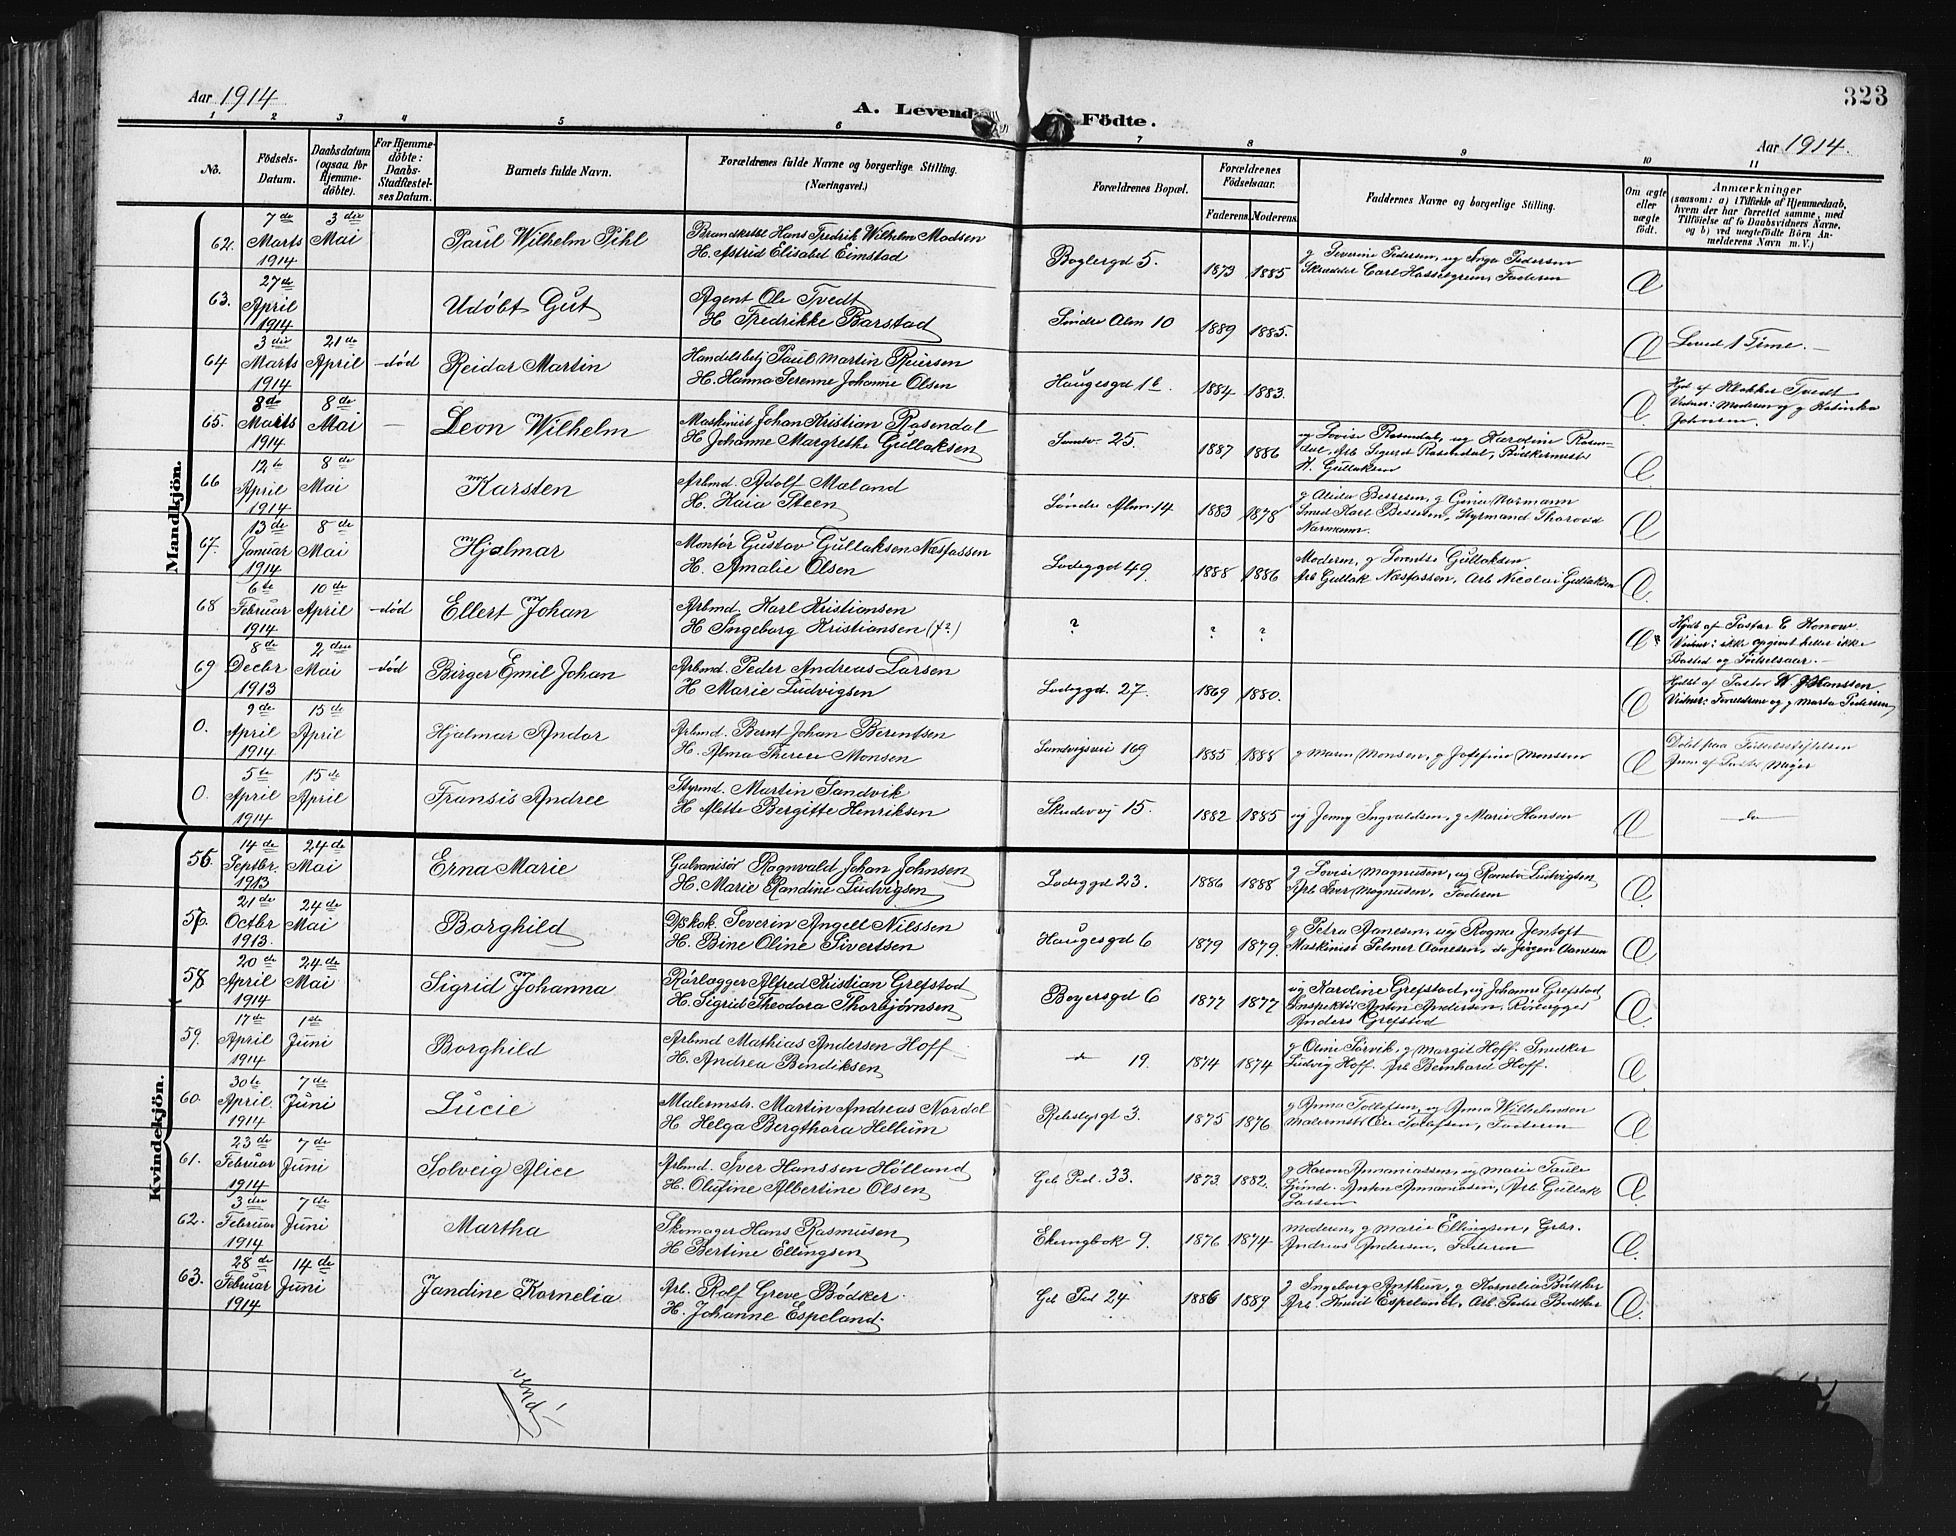 323
Aar 1914
A. Levende Födte.
Aar 1914.
1 2 3 4 5 6 7 8 9 10 11
No.
Födsels-
Datum.
Daabsdatum
(ogsaa for
Hjemme-
döbte).
For Hjemme-
döbte:
Daabs-
Stadfæstel-
ses Datum.
Barnets fulde Navn.
Forældrenes fulde Navne og borgerlige Stilling.
(Næringsvei.)
Forældrenes Bopæl.
Forældrenes
Födselsaar.
Faderens. Moderens.
Faddernes Navne og borgerlige Stilling.
Om ægte
eller
uægte
födt.
Anmærkninger
(saasom: a) i Tilfælde af Hjemmedaab,
hvem der har forrettet samme, med
Tilföielse af to Daabsvidners Navne,
og b) ved uægtefödte Börn An-
melderens Navn m. V.)
Mandkjön.
62. 7de Marts 1914 3die Mai
Paul Wilhelm Pihl
Hans Fredrik Wilhelm Madsen
H. Astrid Elisabet Eimstad
5. 1873 1885
g Severine Pedersen, ug Inga Pedersen
Skrædder Carl Hasselgreen, Faderen
Æ
63. 27de April 1914
Udöbt Gut
Agent Ole Tvedt
H Fredrikke Barstad
Söndre Alm 10 1889 1885.
Æ
Levede 1 Time.
64 3die Marts 1914 21de April -död
Reidar Martin
Handelsbetj Paul Martin Reiersen
H. Hanna Serenne Johanne Olsen
Haugesgd 1b. 1884 1883.
Æ
Hjd af Klokker Tvedt
Vidner: Moderen og g Katinka
Johnsen.
65. 8de Marts 1914 8de Mai
Leon Wilhelm
Maskinist Johan Kristian Rosendal
H. Johanne Margrethe Gullaksen
Sandv. 25. 1887 1886
ug Lovise Rosendal, ug Karoline Rosen-
dal, Arb Sigurd Rosendal, Bödkermester
H. Gullaksen
Æ
66 12te April 1914 8de Mai
Karsten
Arbmd. Adolf Mæland
H. Kaia Steen
Söndre Alm 14 1883 1878
g Alida Bessesen, g Gina Normann
Smed Karl Bessesen, Styrmand Thorvld
Normann.
Æ
67. 13de Januar 1914 8de Mai
Hjalmar
Montör Gustav Gullaksen Næsfossen
H. Amalie Olsen
Lodeggd 49 1888 1886
Moderen, g Gullaksen
Arb Gullak Næsfossen, Arb Nicolai Gullaksen
Æ
68 6te Februar 1914 10de April -död
Ellert Johan
Arbmd. Karl Kristiansen
H Ingeborg Kristiansen
? ? ?
Æ?
Hjdt af Pastor E Konow.
Vidner: ikke opgivet heller ikke
Bosted og Födselsaar.
69 8de Decbr 1913 2den Mai -död
Birger Emil Johan
Arbmd. Peder Andreas Larsen
H Marie Ludvigsen
Lodeggd. 27. 1869 1880.
Æ
Hjdöbt af Pastor W J Hanssen.
Vidner: Forældrene og g Marta Pedersen
0. 9de April 1914 15de April
Hjalmar Andor
Arbmd. Bernt Johan Berentsen
H. Alma Therese Monsen
Sandvigsvei 169 1885 1888
g Maren Monsen, g Josefine Monsen
Æ
Döbt paa Födselsstiftelsen
af Pastor Meyer
0. 5te April 1914 15de April
Fransis Andree
Styrmd. Martin Sandvik
H Alette Bergitte Henriksen
15. 1882 1885
ug Jenny Ingvaldsen, g Marie Hansen
Æ
do
Kvindekjön.
56. 14de Septbr. 1913 24de Mai
Erna Marie
Galvanisör Ragnvald Johan Johnsen
H. Marie Randine Ludvigsen
Lodeggd 23. 1886 1888
g Lovise Magnusen, ug Randi Ludvigsen
Arb Iver Magnusen, Faderen
Æ
57. 21de Octbr 1913. 24de Mai
Borghild
D/skok. Severin Angell Nilssen
H. Bine Oline Sivertsen
Haugesgd 6 1879 1879.
g Petra Aanesen, ug Ragna Jentoft
Maskinist Selmer Aanesen, do Jörgen Aanesen
Æ
58 20de April 1914 24de Mai
Sigrid Johanna
Rörlægger Alfred Kristian Grefstad
H. Sigrid Theodora Thorbjörnsen
Beyersgd 6 1877 1877
ug Karoline Grefstad, ug Johanne Grefstad
Inspektör Anton Andersen, Rörlægger
Anders Grefstad
Æ
59. 17de April 1914 1ste Juni
Borghild
Arbmd Mathias Andersen Hoff
H. Andrea Bendiksen
do 19. 1874 1874
g Oline Sörvik, g Margit Hoff. Snedker
Ludvig Hoff. Arb Bernhard Hoff.
Æ
60. 30te April. 1914 7de Juni
Lucie
Malermstr. Martin Andreas Nordal
H Helga Bergthora Hellum
3. 1875 1876
g Anna Tollefsen, ug Anna Wilhelmsen
Malermstr Ole Tollefsen, Faderen
Æ
61. 23de Februar 1914 7de Juni
Solveig Alice
Arbmd. Iver Hanssen Hölland
H. Olufine Albertine Olsen
Geb Ped. 33. 1873 1882.
g Karen Annaniassen, ug Marie Taule
Anton Annaniasen, Arb Gullak
Larsen
Æ
62. 3die Februar 1914 7de Juni
Martha
Skomager Hans Rasmusen
H Bertine Ellingsen
9. 1876 1874
Moderen, g Marie Ellingsen, Grbr.
Andreas Andersen, Faderen
Æ
63. 28de Februar 1914 14de Juni
Jandine Kornelia
Arb. Rolf Greve Bödker
H. Johanne Espeland
Geb Ped 24 1886 1889
g Ingeborg Anthun, g Kornelia Bödtker
Arb. Knud Espelandt, Arb. Peder Bödtker
Æ
vend!